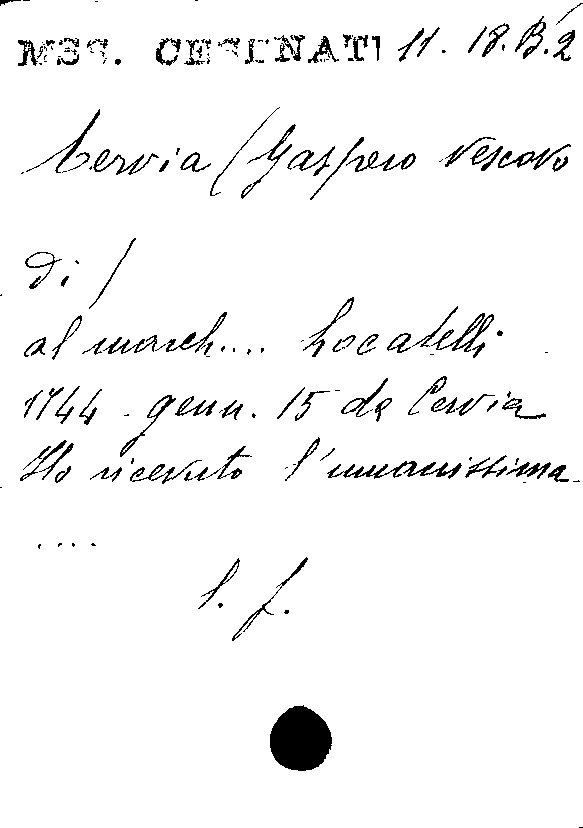 MSS. CESENATI 11. 18. B. 2
Cervia (Gaspero Vescovo
di)
al march.... Locatelli
1744 - genn. 15 da Cervia
Ho ricevuto l'umanissima
....
l. f.